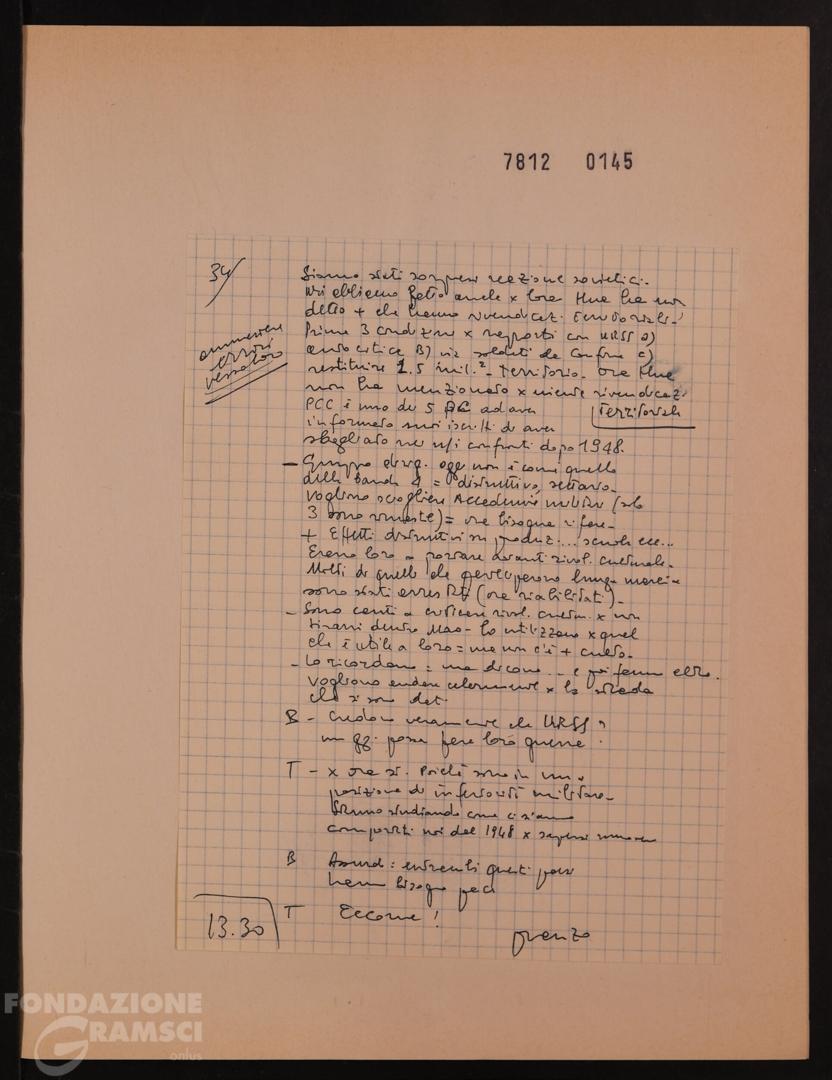 7812 0145
34/
Siamo stati sorpresi reazione sovietici.
Noi abbiamo fatto anche x loro Hua ha non
detto + che hanno rivendicaz. territoriali.
Prima 3 condizioni x rapporti con URSS a)
autocritica B) via soldati da confine c)
restituire 1.5 mil.² territorio. Ora Hua
non ha menzionato x niente rivendicaz.
territoriali
ammissione
errori
verso loro
PCC è uno dei 5 PC ad aver
informato suoi iscritti di aver
sbagliato nei ns/ confronti dopo 1948.
– Gruppo dirig. oggi non è come quello
della Banda 4 = distruttivo, settario.
Vogliono sciogliere Accademie militari (solo
3 sono rimaste) = ora bisogna rifare.
+ Effetti distruttivi su produz... scuole ecc...
Erano loro a portare avanti rivol. culturale.
Molti di quelli che parteciparono lunga marcia
sono stati arrestati (ora riabilitati).
– Sono cauti a criticare rivol. cultur. x non
tirarci dentro Mao. Lo utilizzano x quel
che è utile a loro = ma non c'è + culto.
– Lo ricordano = ma dicono ... e poi fanno altro.
Vogliono andare celermente x la strada
che si sono dati.
B – Credono veramente che URSS
un gg. possa fare loro guerra?
T – x ora sì. Poiché sono in una
posizione di inferiorità militare.
Stanno studiando come ci siamo
comportati noi dal 1948 x
B Assurdo: entrambi questi paesi
hanno bisogno pace
T Eccome!
13.30
pranzo
FONDAZIONE
GRAMSCI
onlus